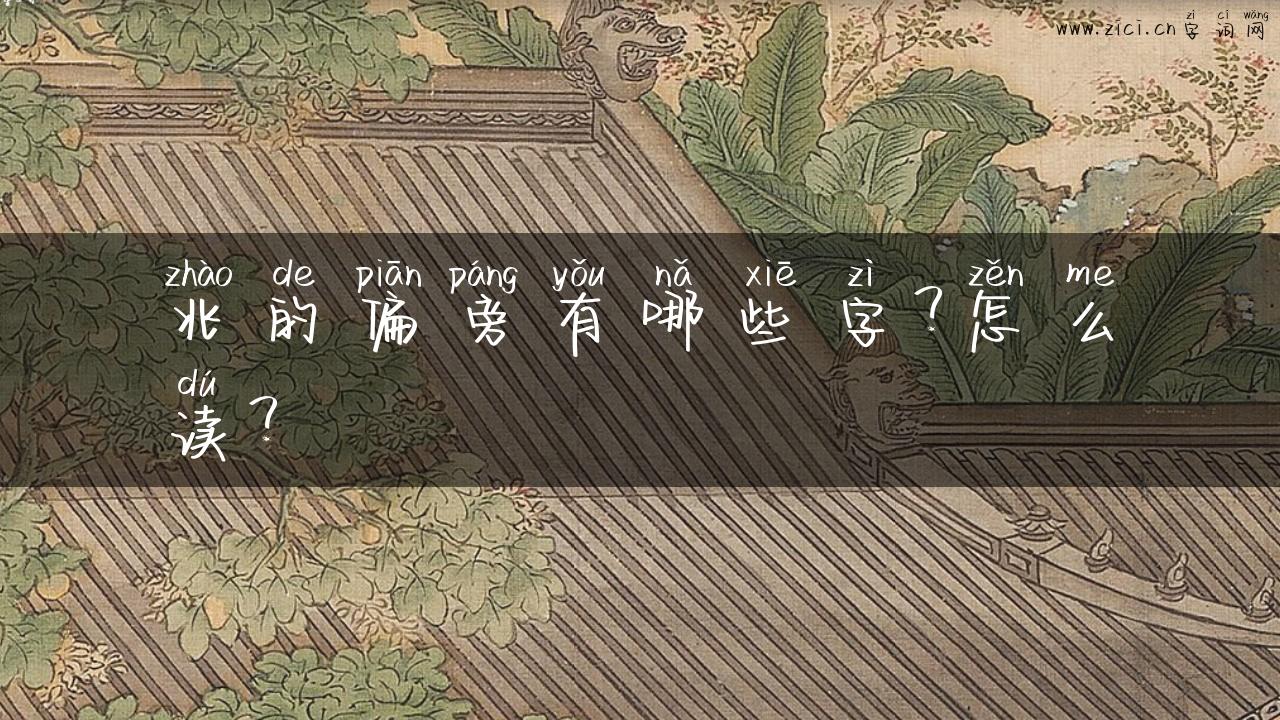 www.zici.cn zì cí wǎng
字词网
zhào de piān páng yǒu nǎ xiē zì zěn me
兆的偏旁有哪些字?怎么
dú
读?